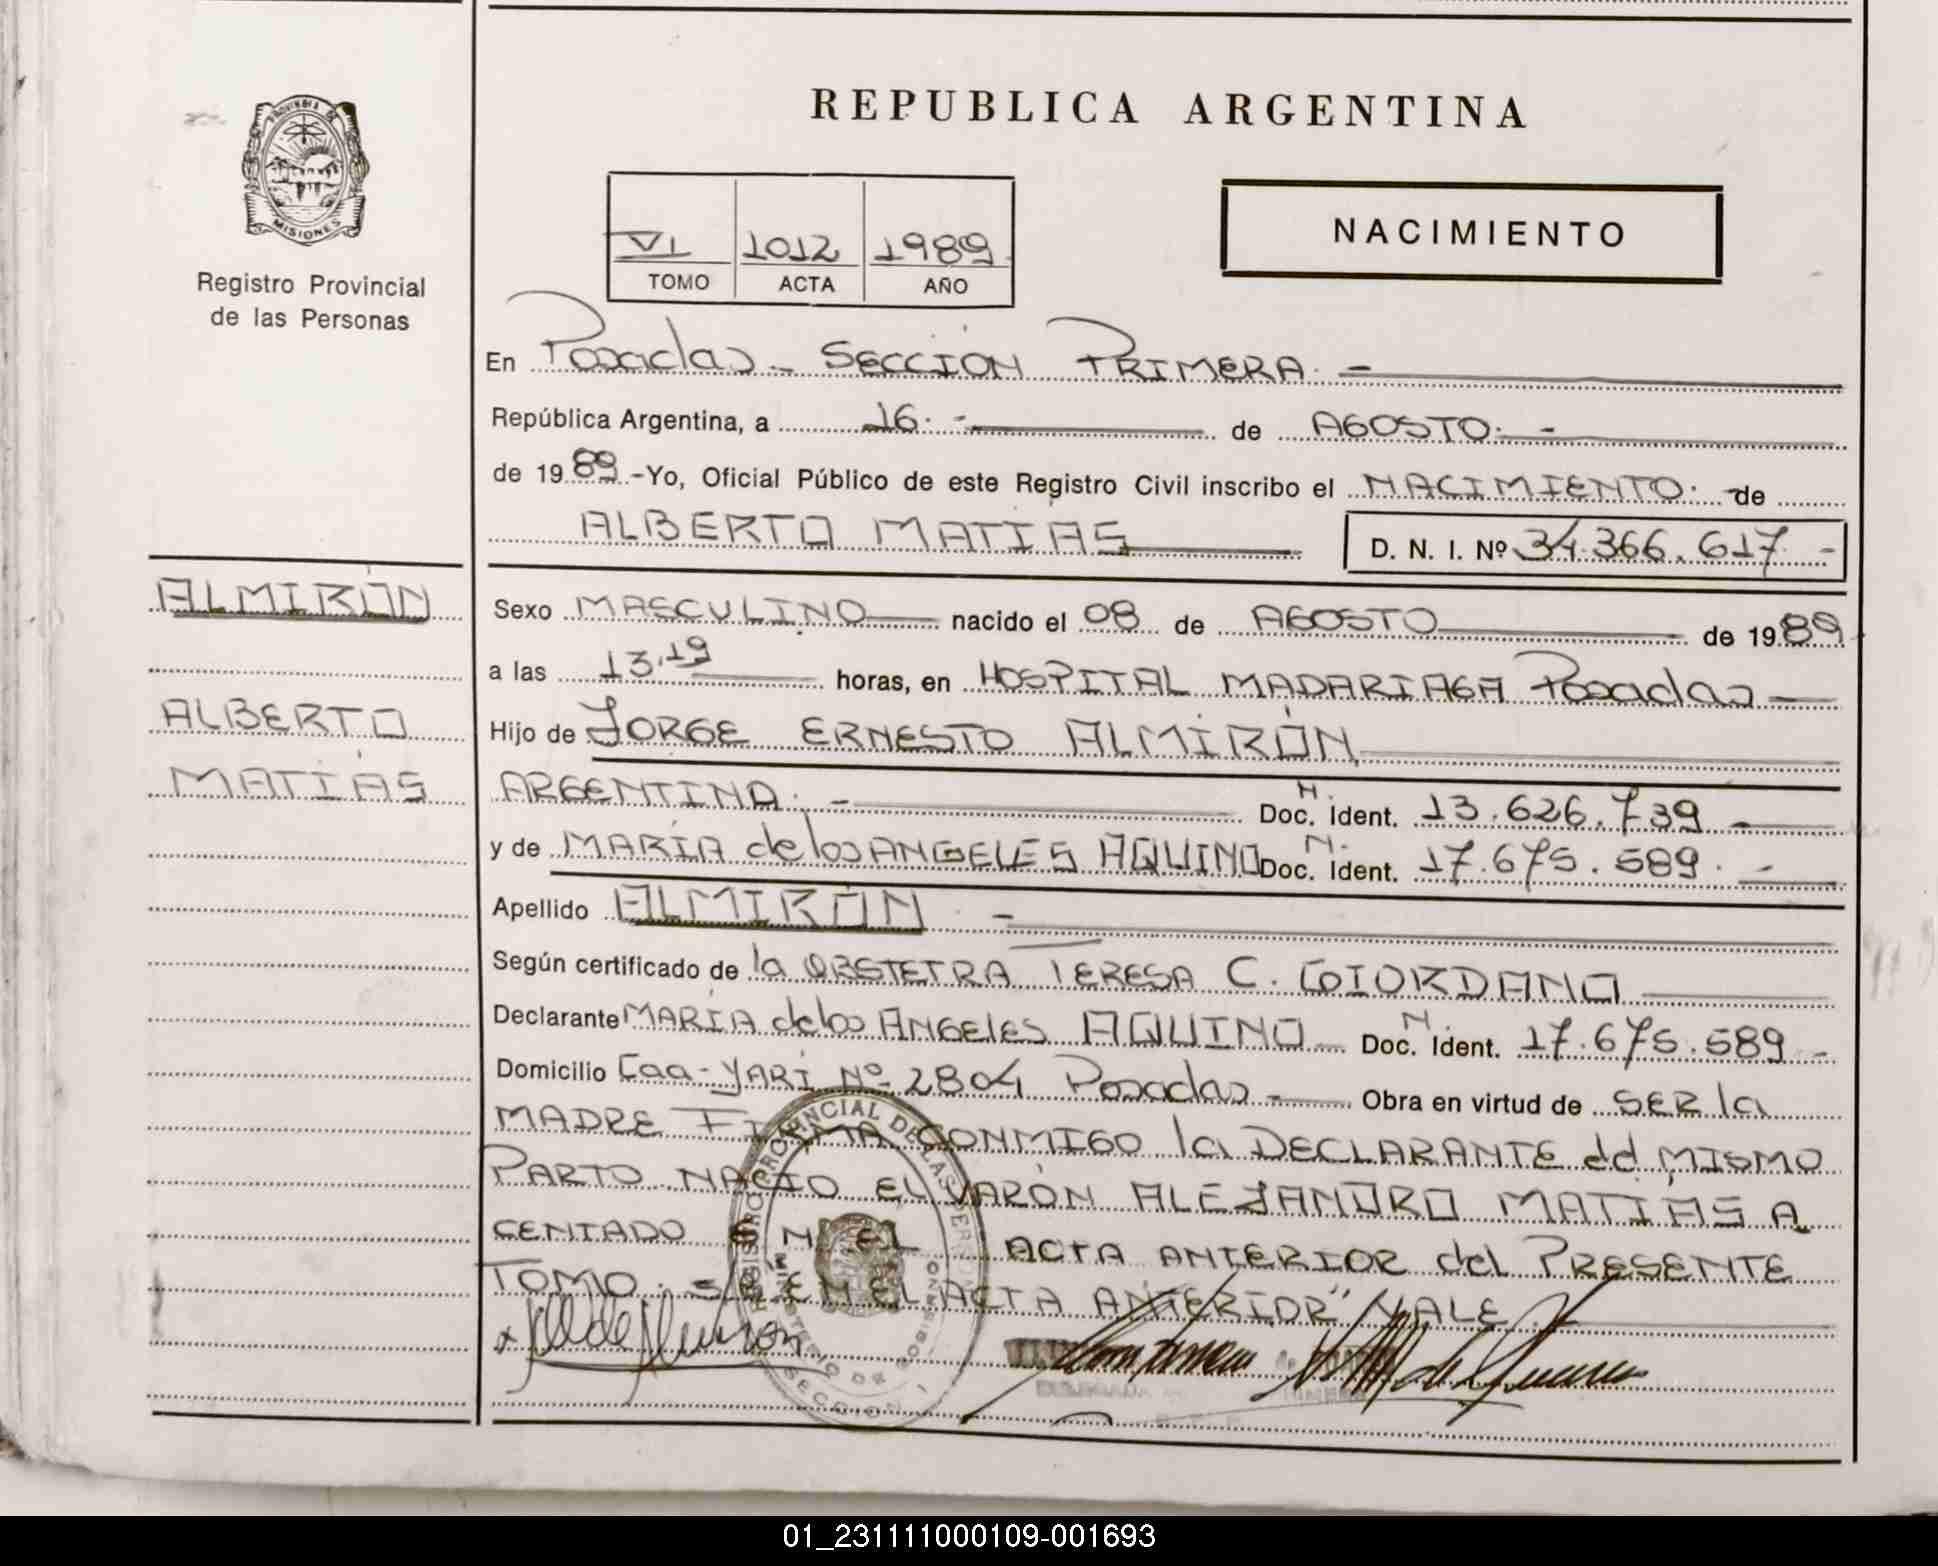 PROVINCIA DE
MISIONES
Registro Provincial
de las Personas
REPUBLICA ARGENTINA
VI 1012 1989
TOMO ACTA AÑO
NACIMIENTO
En Posadas - SECCION PRIMERA. -
República Argentina, a 16. - de AGOSTO. -
de 1989.-Yo, Oficial Público de este Registro Civil inscribo el NACIMIENTO. de
ALBERTO MATIAS D. N. I. Nº 34.366.617 -
ALMIRÓN
ALBERTO
MATIAS
Sexo MASCULINO nacido el 08 de AGOSTO de 1989
a las 13,19 horas, en HOSPITAL MADARIAGA Posadas
Hijo de JORGE ERNESTO ALMIRÓN
ARGENTINA. - Doc. N. Ident. 13.626.739
y de MARÍA de los ANGELES AQUINO Doc. N. Ident. 17.675.589. -
Apellido ALMIRÓN. -
Según certificado de la OBSTETRA TERESA C. GIORDANO
Declarante MARÍA de los ANGELES AQUINO Doc. N. Ident. 17.675.589 -
Domicilio Caa-YARÍ Nº 2804 Posadas - Obra en virtud de SER la
MADRE FIRMA CONMIGO la DECLARANTE del MISMO
PARTO NACIO EL VARÓN ALEJANDRO MATIAS A
CENTADO EN EL ACTA ANTERIOR del PRESENTE
TOMO. S/R EN EL ACTA ANTERIOR" VALE.
01_231111000109-001693